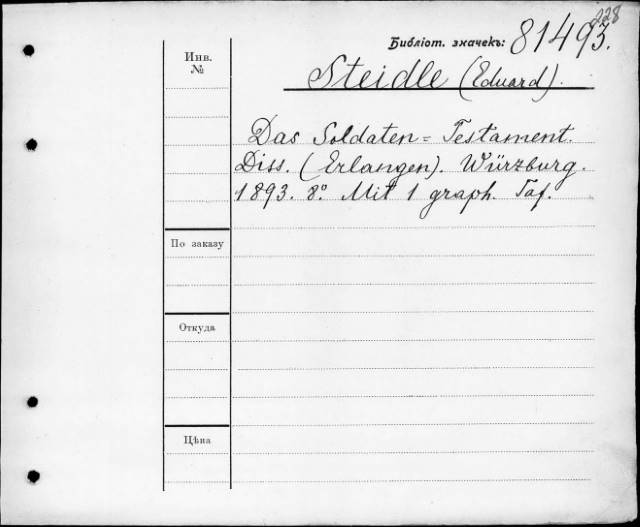 228
Библіот. значекъ: 81493.
Инв.
№
Steidle (Eduard).
Das Soldaten=Testament.
Diss. (Erlangen). Würzburg.
1893. 8º. Mit 1 graph. Taf.
По заказу
Откуда
Цѣна